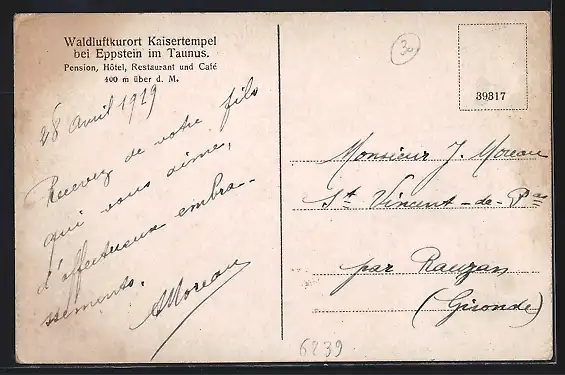 Waldluftkurort Kaisertempel
bei Eppstein im Taunus.
Pension, Hôtel, Restaurant und Café
400 m über d. M.
28 Avril 1919
Recevez de votre fils
qui vous aime,
d'affectueux embra-
ssements.
AMoreau
30
39317
Monsieur J. Moreau
St Vincent-de-Pas
par Rauzan
(Gironde)
6239